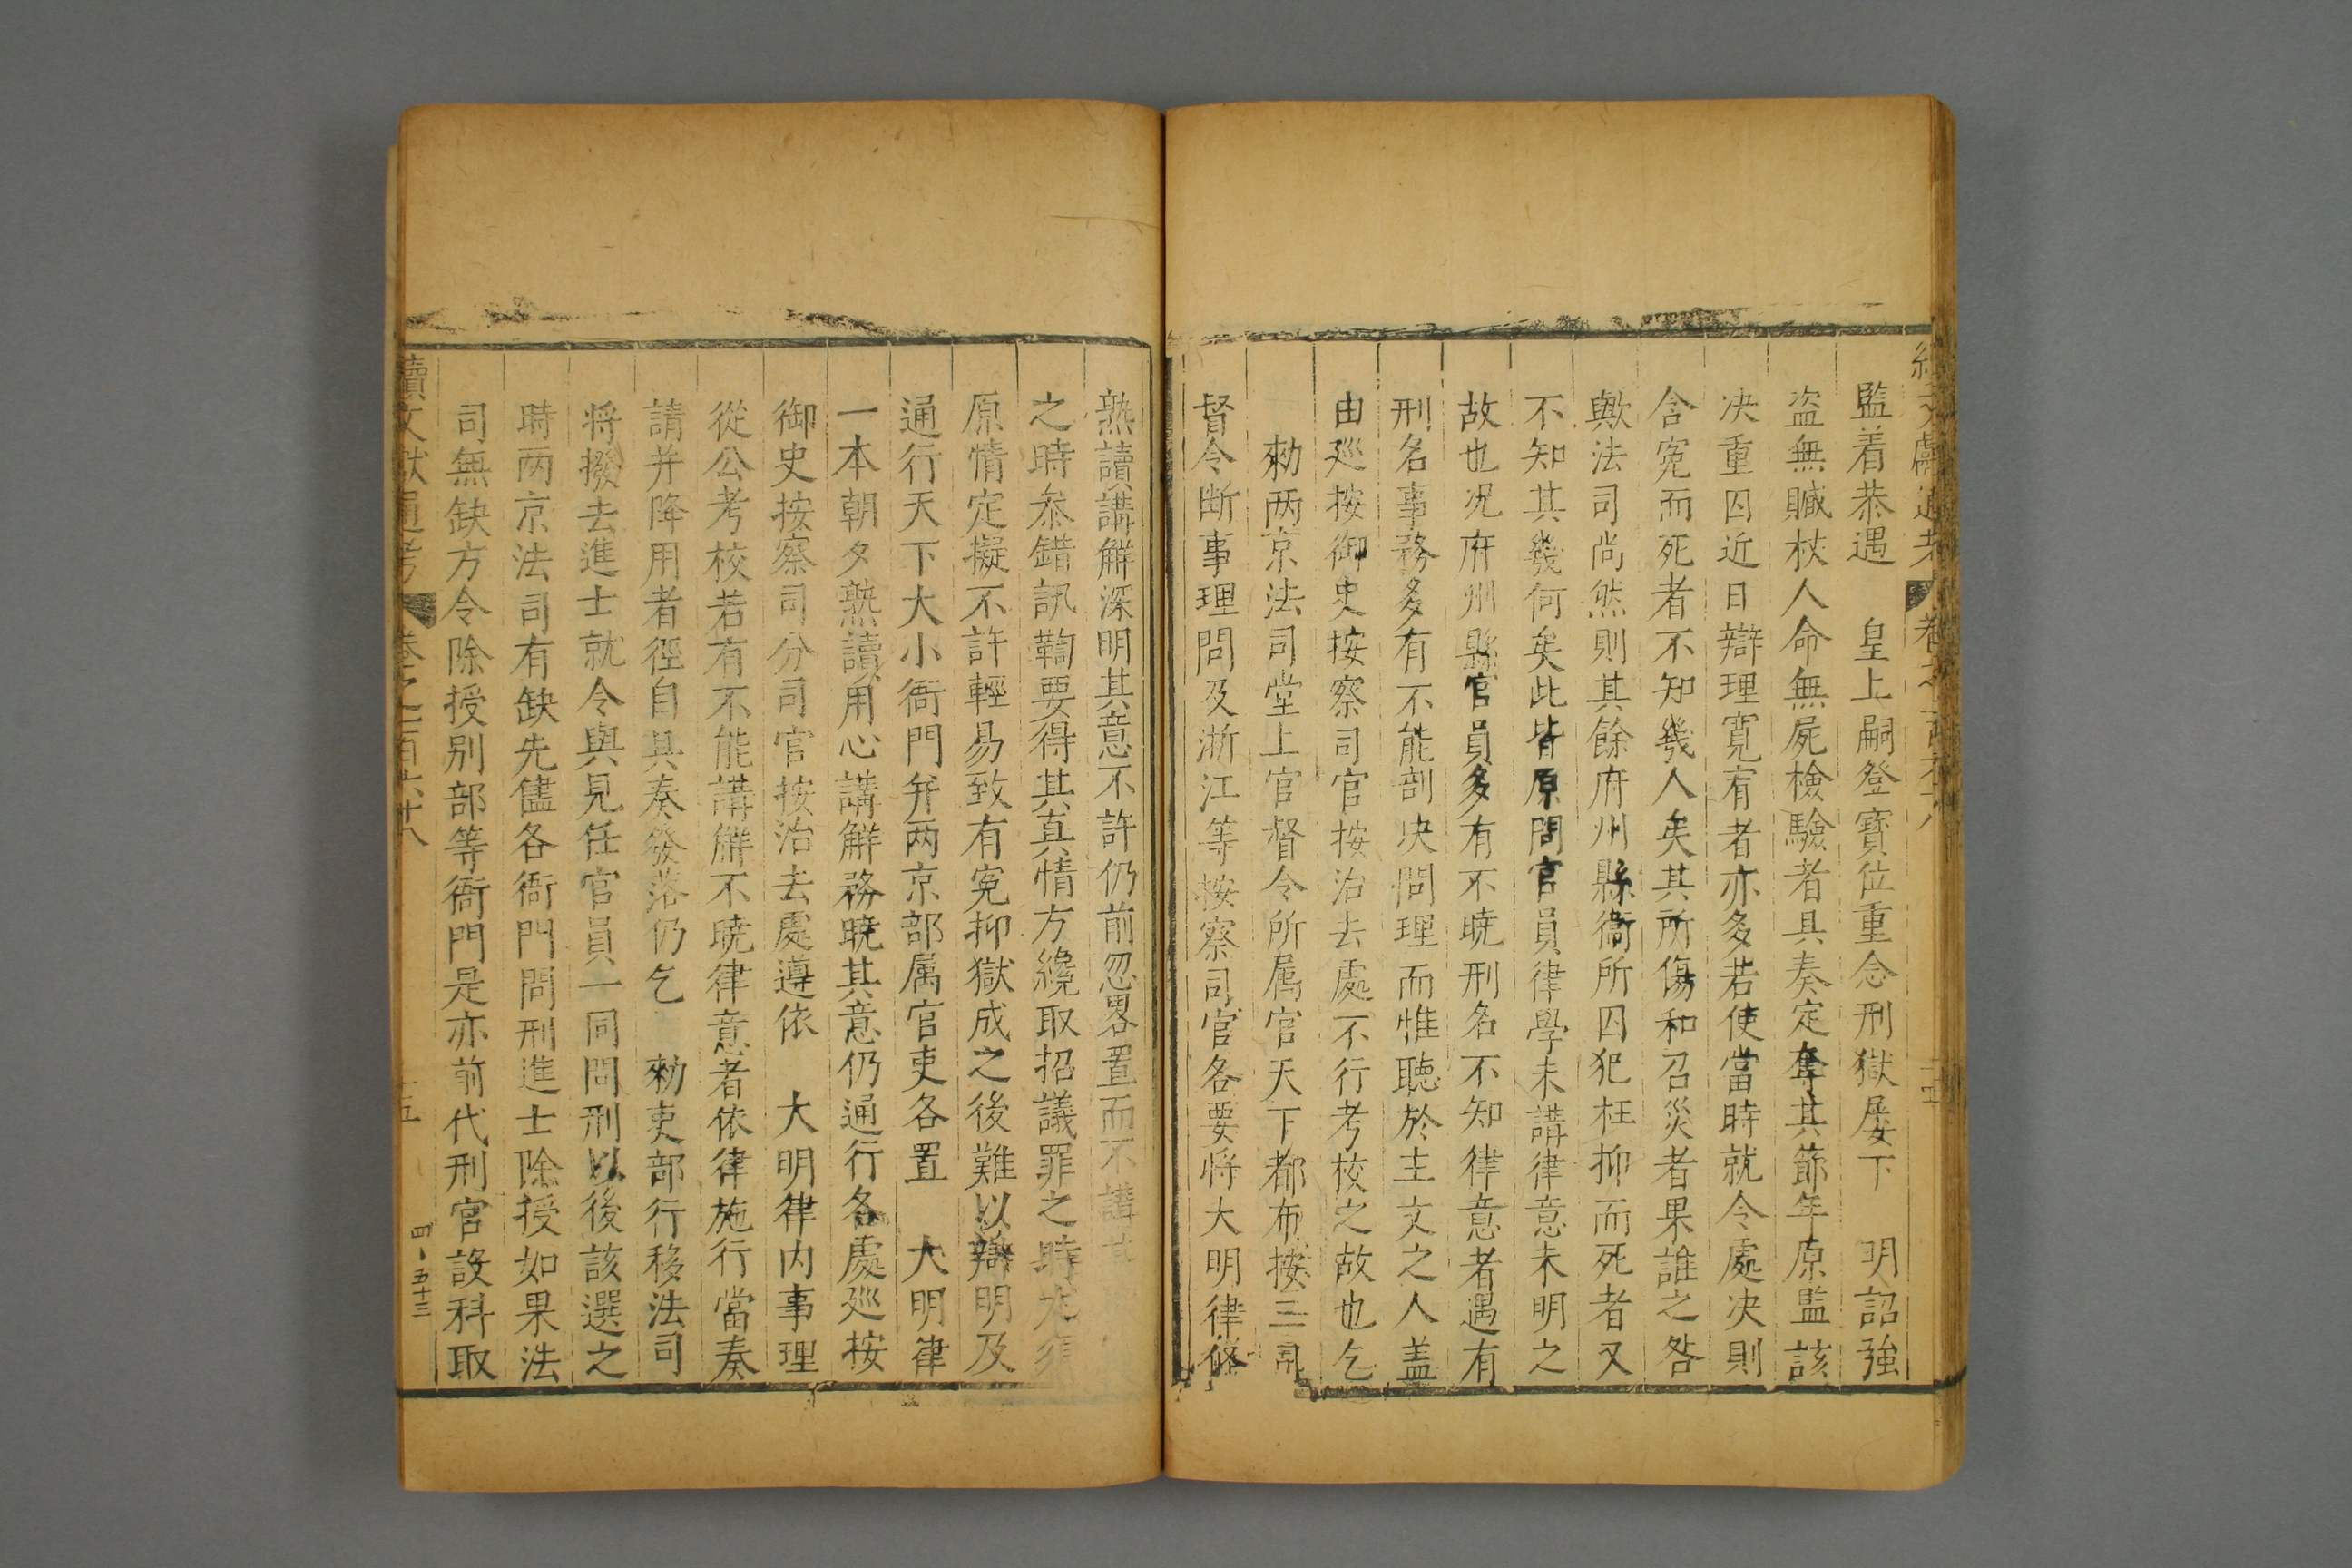 監着恭遇 皇上嗣登寳位重念刑獄屡下 明詔強
盗無贓杖人命無屍檢驗者具奏定奪其節年原監該
决重囚近日辯理寛宥者亦多若使當時就令處决則
含寃而死者不知幾人矣其所傷和召災者果誰之咎
歟法司尚然則其餘府州縣衞所囚犯枉抑而死者又
不知其幾何矣此皆原問官員律學未講律意未明之
故也况府州縣官員多有不暁刑名不知律意者遇有
刑名事務多有不能剖决問理而惟聴於主文之人盖
由廵按御史按察司官按治去處不行考校之故也乞
勑两京法司堂上官督令所属官天下都布按三司
督令断事理問及浙江等按察司官各要将大明律條
熟讀講解深明其意不許仍前忽畧置而不講其
之時叅錯訊鞫要得其真情方纔取招議罪之時尤須
原情定擬不許輕易致有寃抑獄成之後難以辯明及
通行天下大小衙門并两京部属官吏各置 大明律
一本朝夕熟讀用心講解務暁其意仍通行各處廵按
御史按察司分司官按治去處遵依 大明律内事理
從公考校若有不能講解不暁律意者依律施行當奏
請并降用者徑自具奏發落仍乞 勑吏部行移法司
将撥去進士就令與見任官員一同問刑以後該選之
時两京法司有缺先儘各衙門問刑進士除授如果法
司無缺方令除授别部等衙門是亦前代刑官設科取
續文獻通考 卷之一百六十八 十五
四、五十三